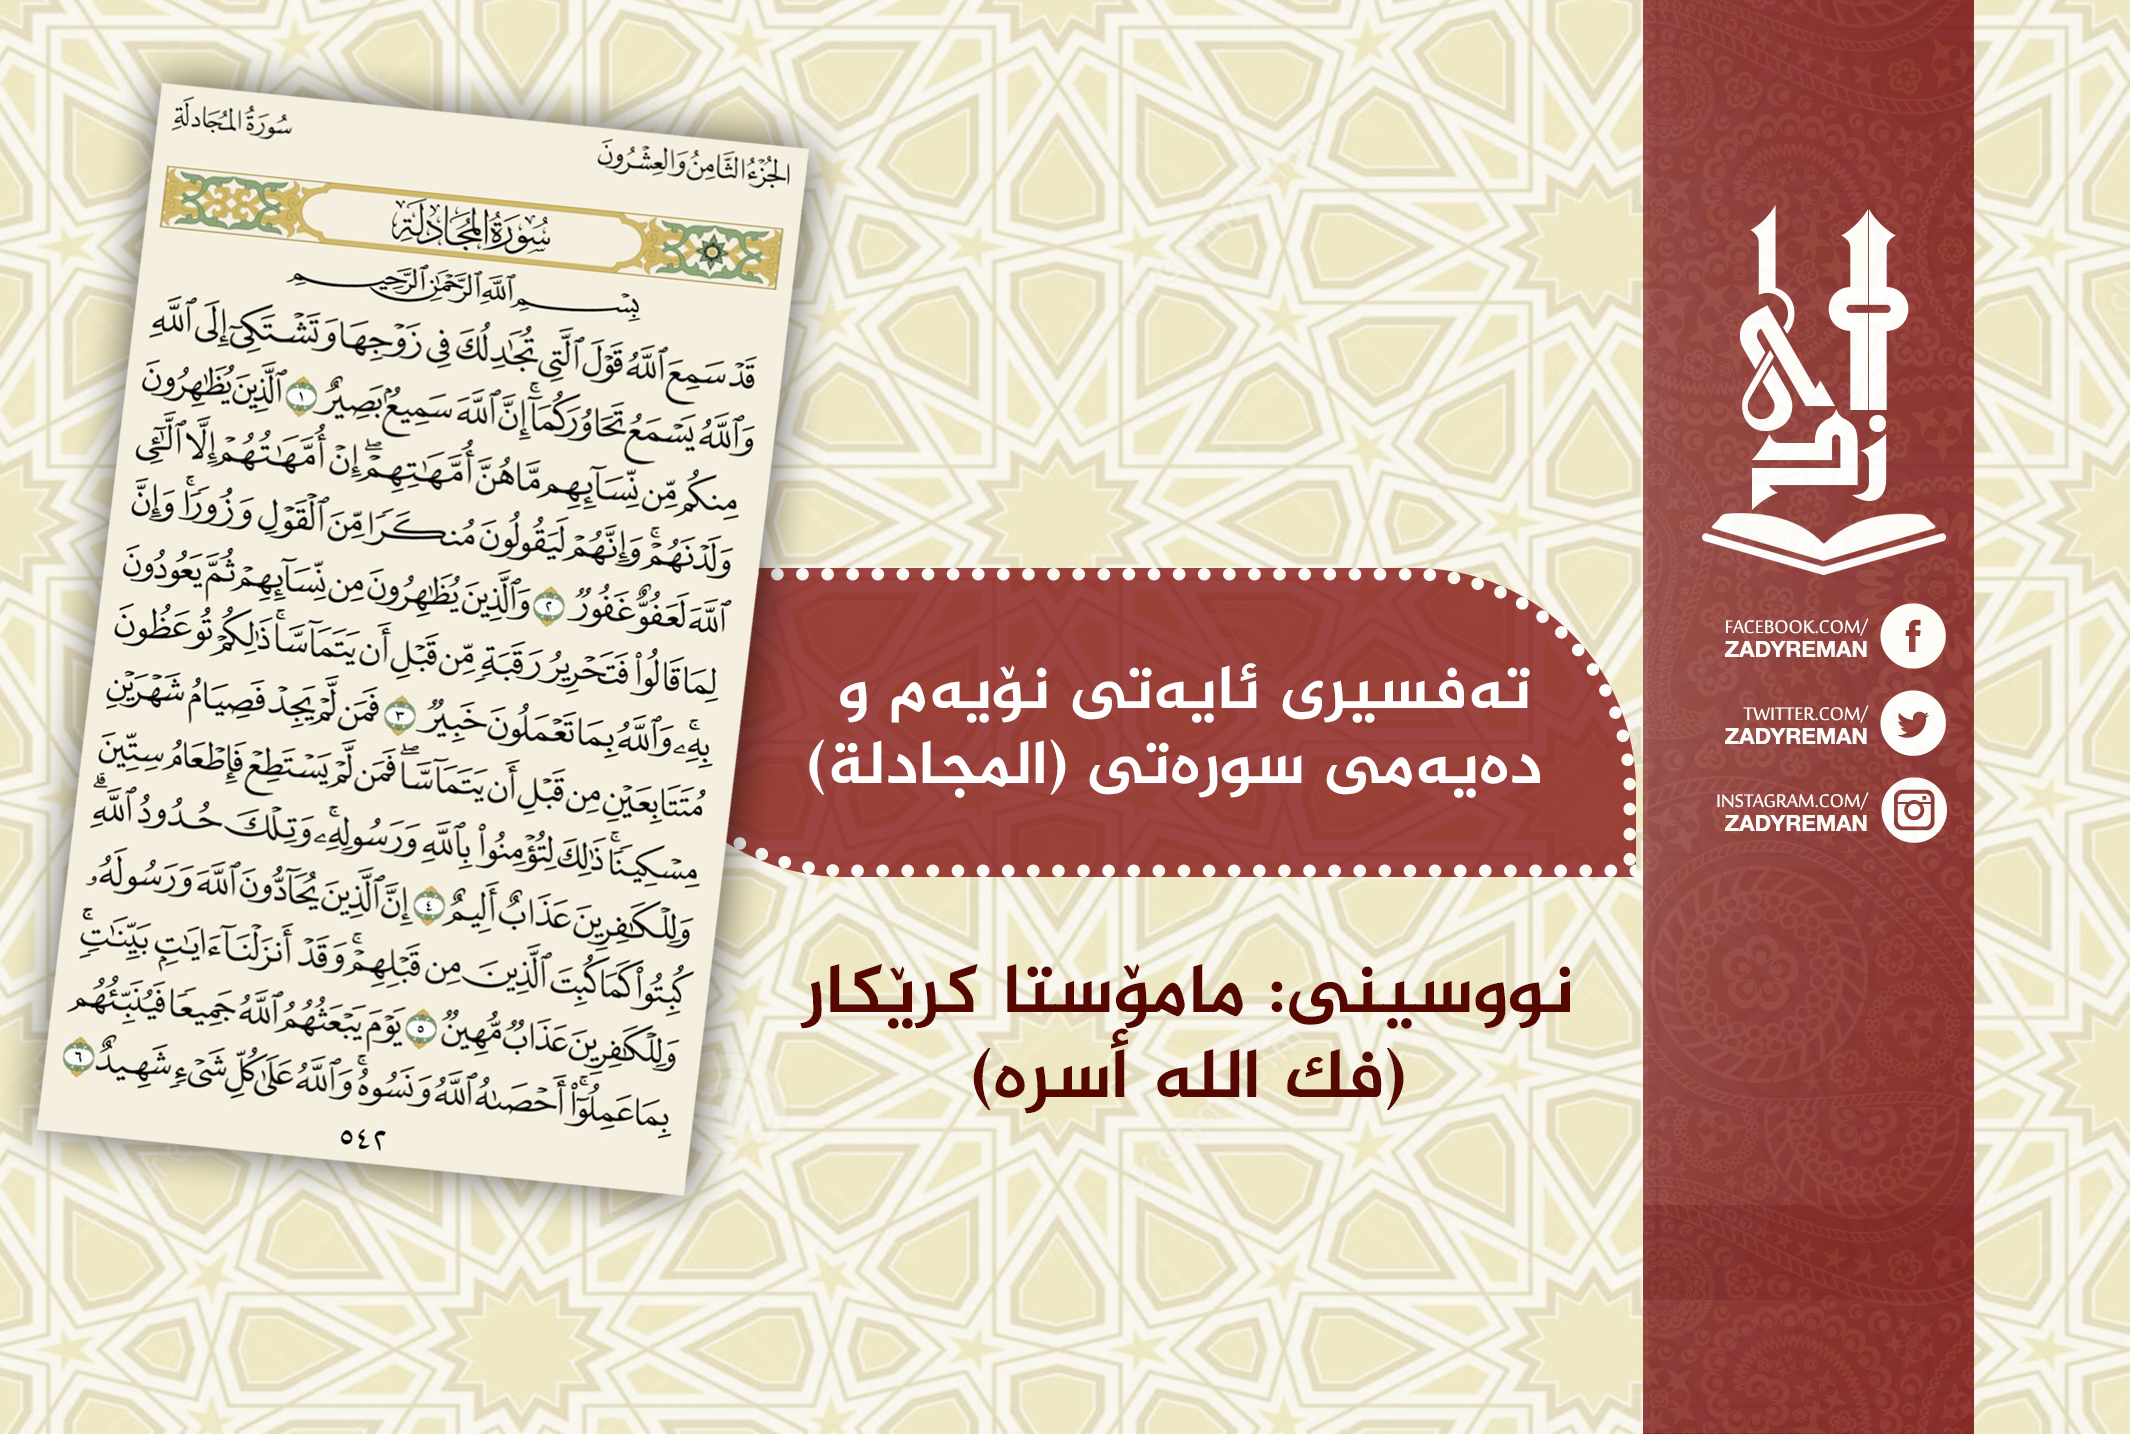 سُورَةُ المُجَادلَةِ
الجُزْءُ الثَّامِنُ وَالعِشْرُونَ
سُورَةُ المُجَادلَةِ
بِسْمِ ٱللَّهِ ٱلرَّحْمَٰنِ ٱلرَّحِيمِ
قَدْ سَمِعَ ٱللَّهُ قَوْلَ ٱلَّتِي تُجَٰدِلُكَ فِي زَوْجِهَا وَتَشْتَكِيٓ إِلَى ٱللَّهِ
وَٱللَّهُ يَسْمَعُ تَحَاوُرَكُمَآۚ إِنَّ ٱللَّهَ سَمِيعُۢ بَصِيرٌ ١ ٱلَّذِينَ يُظَٰهِرُونَ
مِنكُم مِّن نِّسَآئِهِم مَّا هُنَّ أُمَّهَٰتِهِمْۖ إِنْ أُمَّهَٰتُهُمْ إِلَّا ٱلَّٰٓـِٔي
وَلَدْنَهُمْۚ وَإِنَّهُمْ لَيَقُولُونَ مُنكَرًا مِّنَ ٱلْقَوْلِ وَزُورًاۚ وَإِنَّ
ٱللَّهَ لَعَفُوٌّ غَفُورٌ ٢ وَٱلَّذِينَ يُظَٰهِرُونَ مِن نِّسَآئِهِمْ ثُمَّ يَعُودُونَ
لِمَا قَالُوا۟ فَتَحْرِيرُ رَقَبَةٍ مِّن قَبْلِ أَن يَتَمَآسَّاۚ ذَٰلِكُمْ تُوعَظُونَ
بِهِۦۚ وَٱللَّهُ بِمَا تَعْمَلُونَ خَبِيرٌ ٣ فَمَن لَّمْ يَجِدْ فَصِيَامُ شَهْرَيْنِ
مُتَتَابِعَيْنِ مِن قَبْلِ أَن يَتَمَآسَّاۖ فَمَن لَّمْ يَسْتَطِعْ فَإِطْعَامُ سِتِّينَ
مِسْكِينًاۚ ذَٰلِكَ لِتُؤْمِنُوا۟ بِٱللَّهِ وَرَسُولِهِۦۚ وَتِلْكَ حُدُودُ ٱللَّهِۗ
وَلِلْكَٰفِرِينَ عَذَابٌ أَلِيمٌ ٤ إِنَّ ٱلَّذِينَ يُحَآدُّونَ ٱللَّهَ وَرَسُولَهُۥ
كُبِتُوا۟ كَمَا كُبِتَ ٱلَّذِينَ مِن قَبْلِهِمْۚ وَقَدْ أَنزَلْنَآ ءَايَٰتِۭ بَيِّنَٰتٍۚ
وَلِلْكَٰفِرِينَ عَذَابٌ مُّهِينٌ ٥ يَوْمَ يَبْعَثُهُمُ ٱللَّهُ جَمِيعًا فَيُنَبِّئُهُم
بِمَا عَمِلُوٓا۟ۚ أَحْصَىٰهُ ٱللَّهُ وَنَسُوهُۚ وَٱللَّهُ عَلَىٰ كُلِّ شَىْءٍ شَهِيدٌ ٦
٥٤٢
تەفسیری ئایەتی نۆیەم و
دەیەمی سورەتی (المجادلة)
نووسینی: مامۆستا کرێکار
(فك الله أسره)
زادی
FACEBOOK.COM/
ZADYREMAN
TWITTER.COM/
ZADYREMAN
INSTAGRAM.COM/
ZADYREMAN